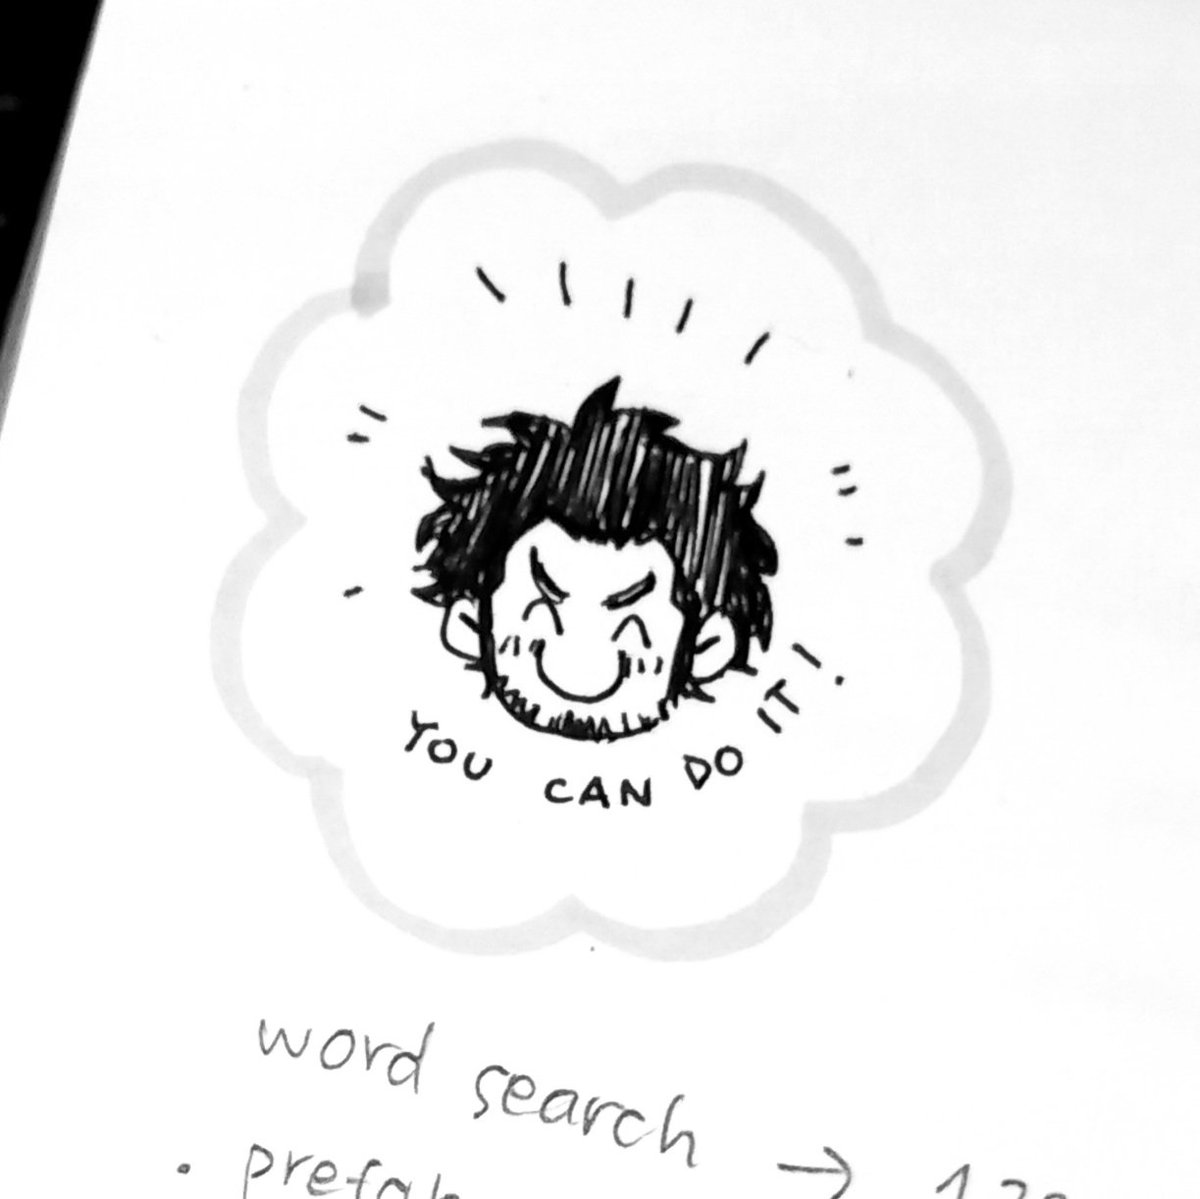 YOU CAN DO IT!
word search →
• prefab